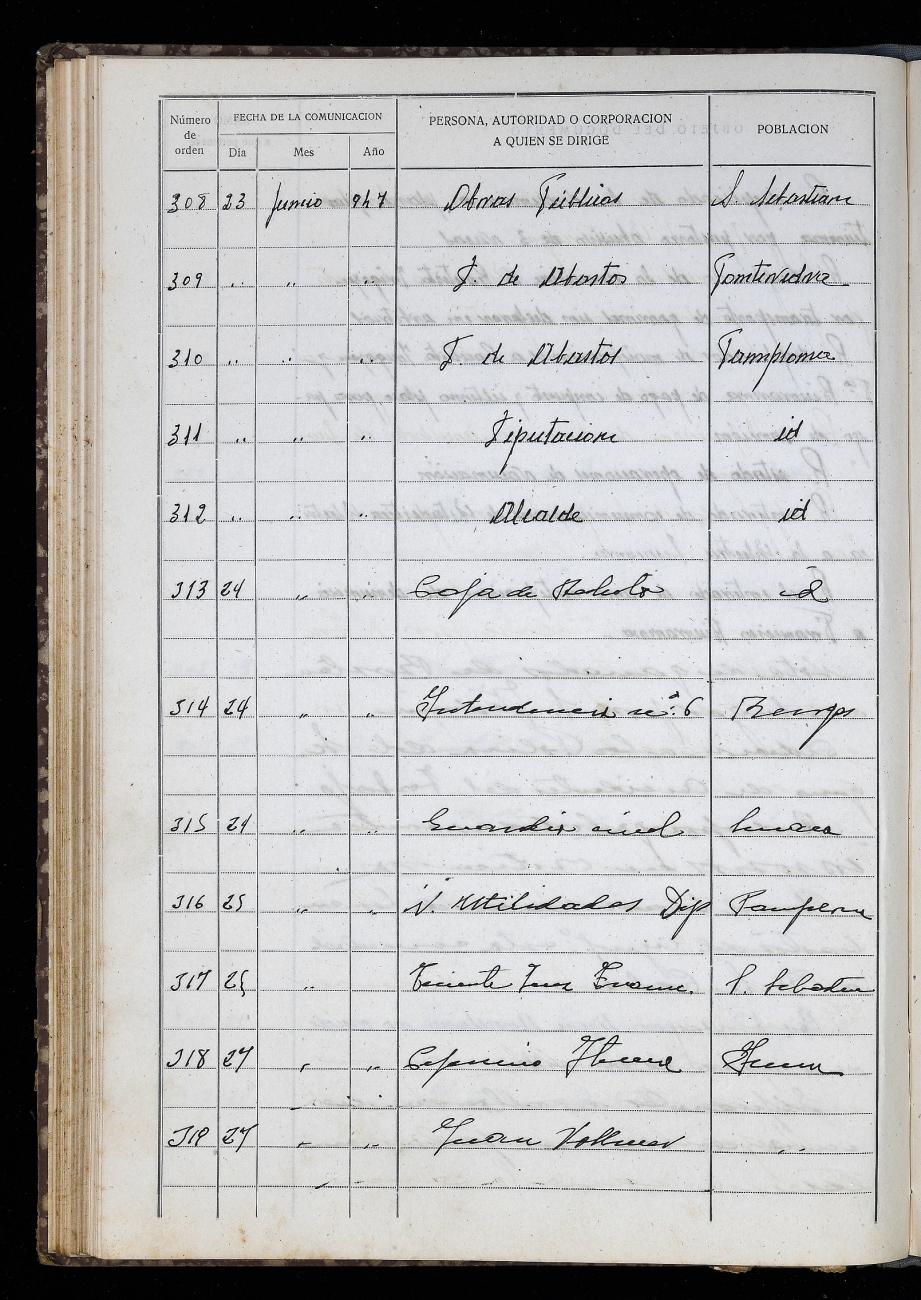 Número de orden | FECHA DE LA COMUNICACION | PERSONA, AUTORIDAD O CORPORACION A QUIEN SE DIRIGE | POBLACION
Día | Mes | Año
308 23 Junio 947 Obras Públicas S. Sebastian
309 .. .. .. J. de Abastos Pontevedra
310 .. .. .. J. de Abastos Pamplona
311 .. .. .. Diputacion id
312 .. .. .. Alcalde id
313 24 .. .. Caja de id
314 24 .. .. Intendencia nº. 6
315 24 .. .. Guardia civil
316 25 .. .. N. Utilidades Dip Pamplona
317 25 .. Teniente Juez S. Sebastian
318 27 .. .. Ceferino
319 27 .. .. Juan Vollmer ..